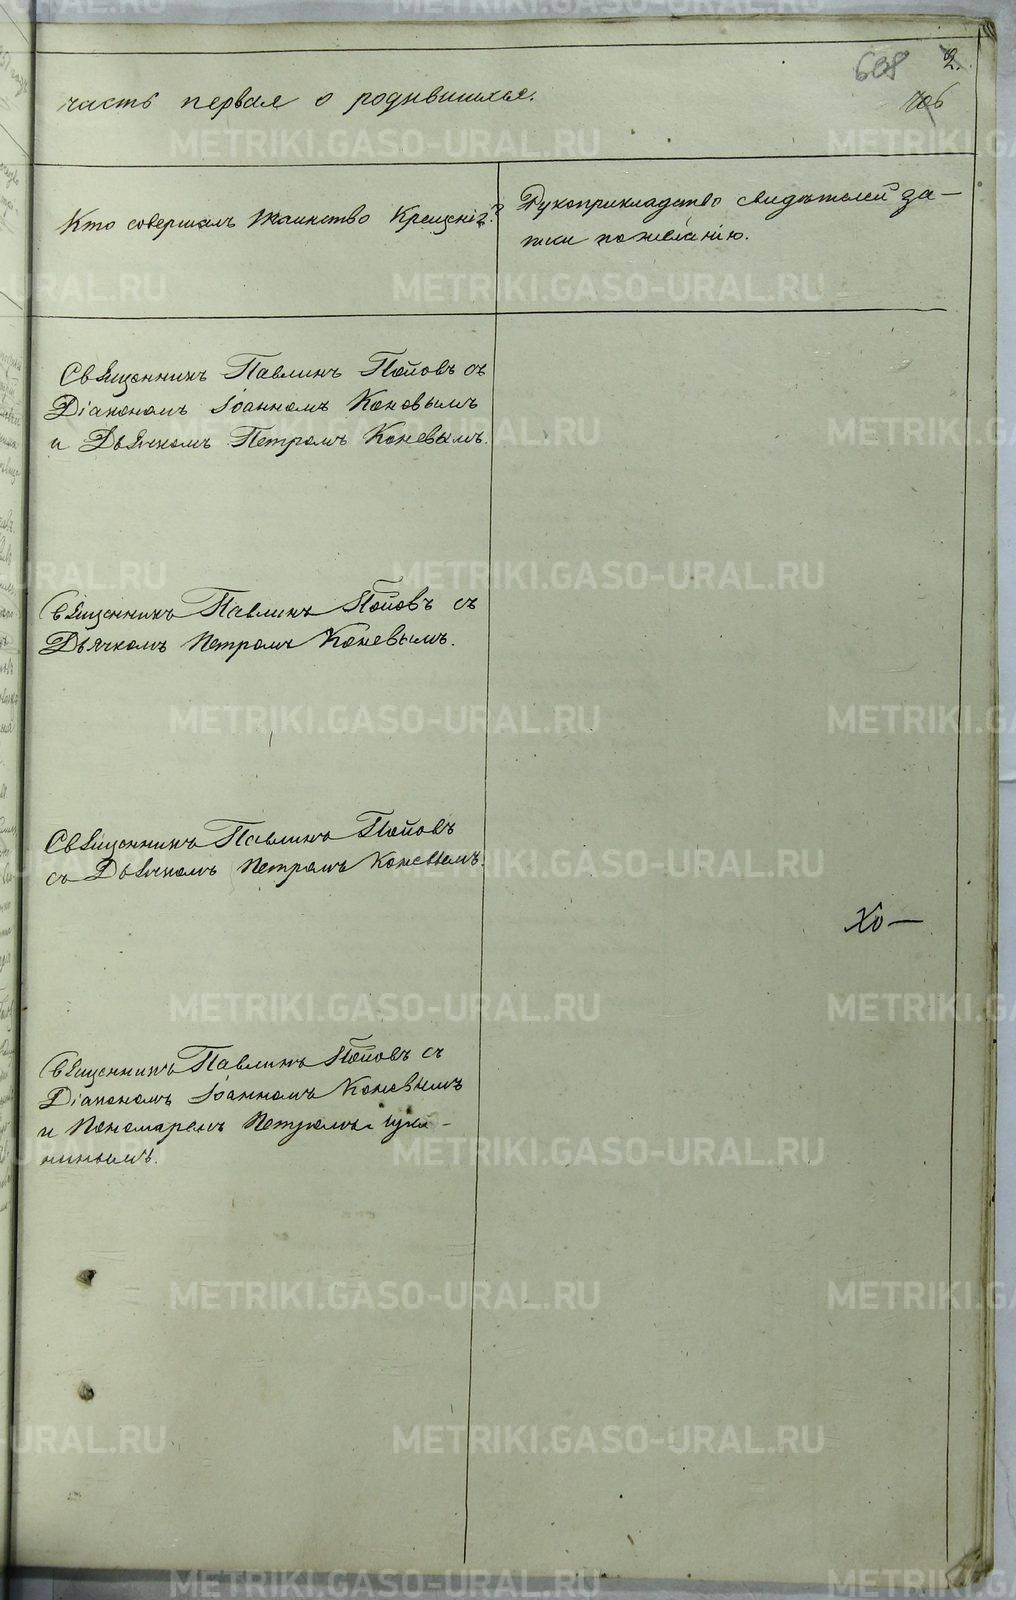 698 2.
часть первая о родившихся. 706
Кто совершалъ таинство Крещенія?
Рукоприкладство свидѣтелей за-
писи по желанію.
Священникъ Павлинъ Поповъ съ
Діакономъ Іоанномъ Коневымъ
и Дьячкомъ Петромъ Коневымъ.
Священникъ Павлинъ Поповъ съ
Дьячкомъ Петромъ Коневымъ.
Священникъ Павлинъ Поповъ
съ Дьячкомъ Петромъ Коневымъ.
Хо—
Священникъ Павлинъ Поповъ съ
Діакономъ Іоанномъ Коневымъ
и Пономаремъ Петромъ
METRIKI.GASO-URAL.RU